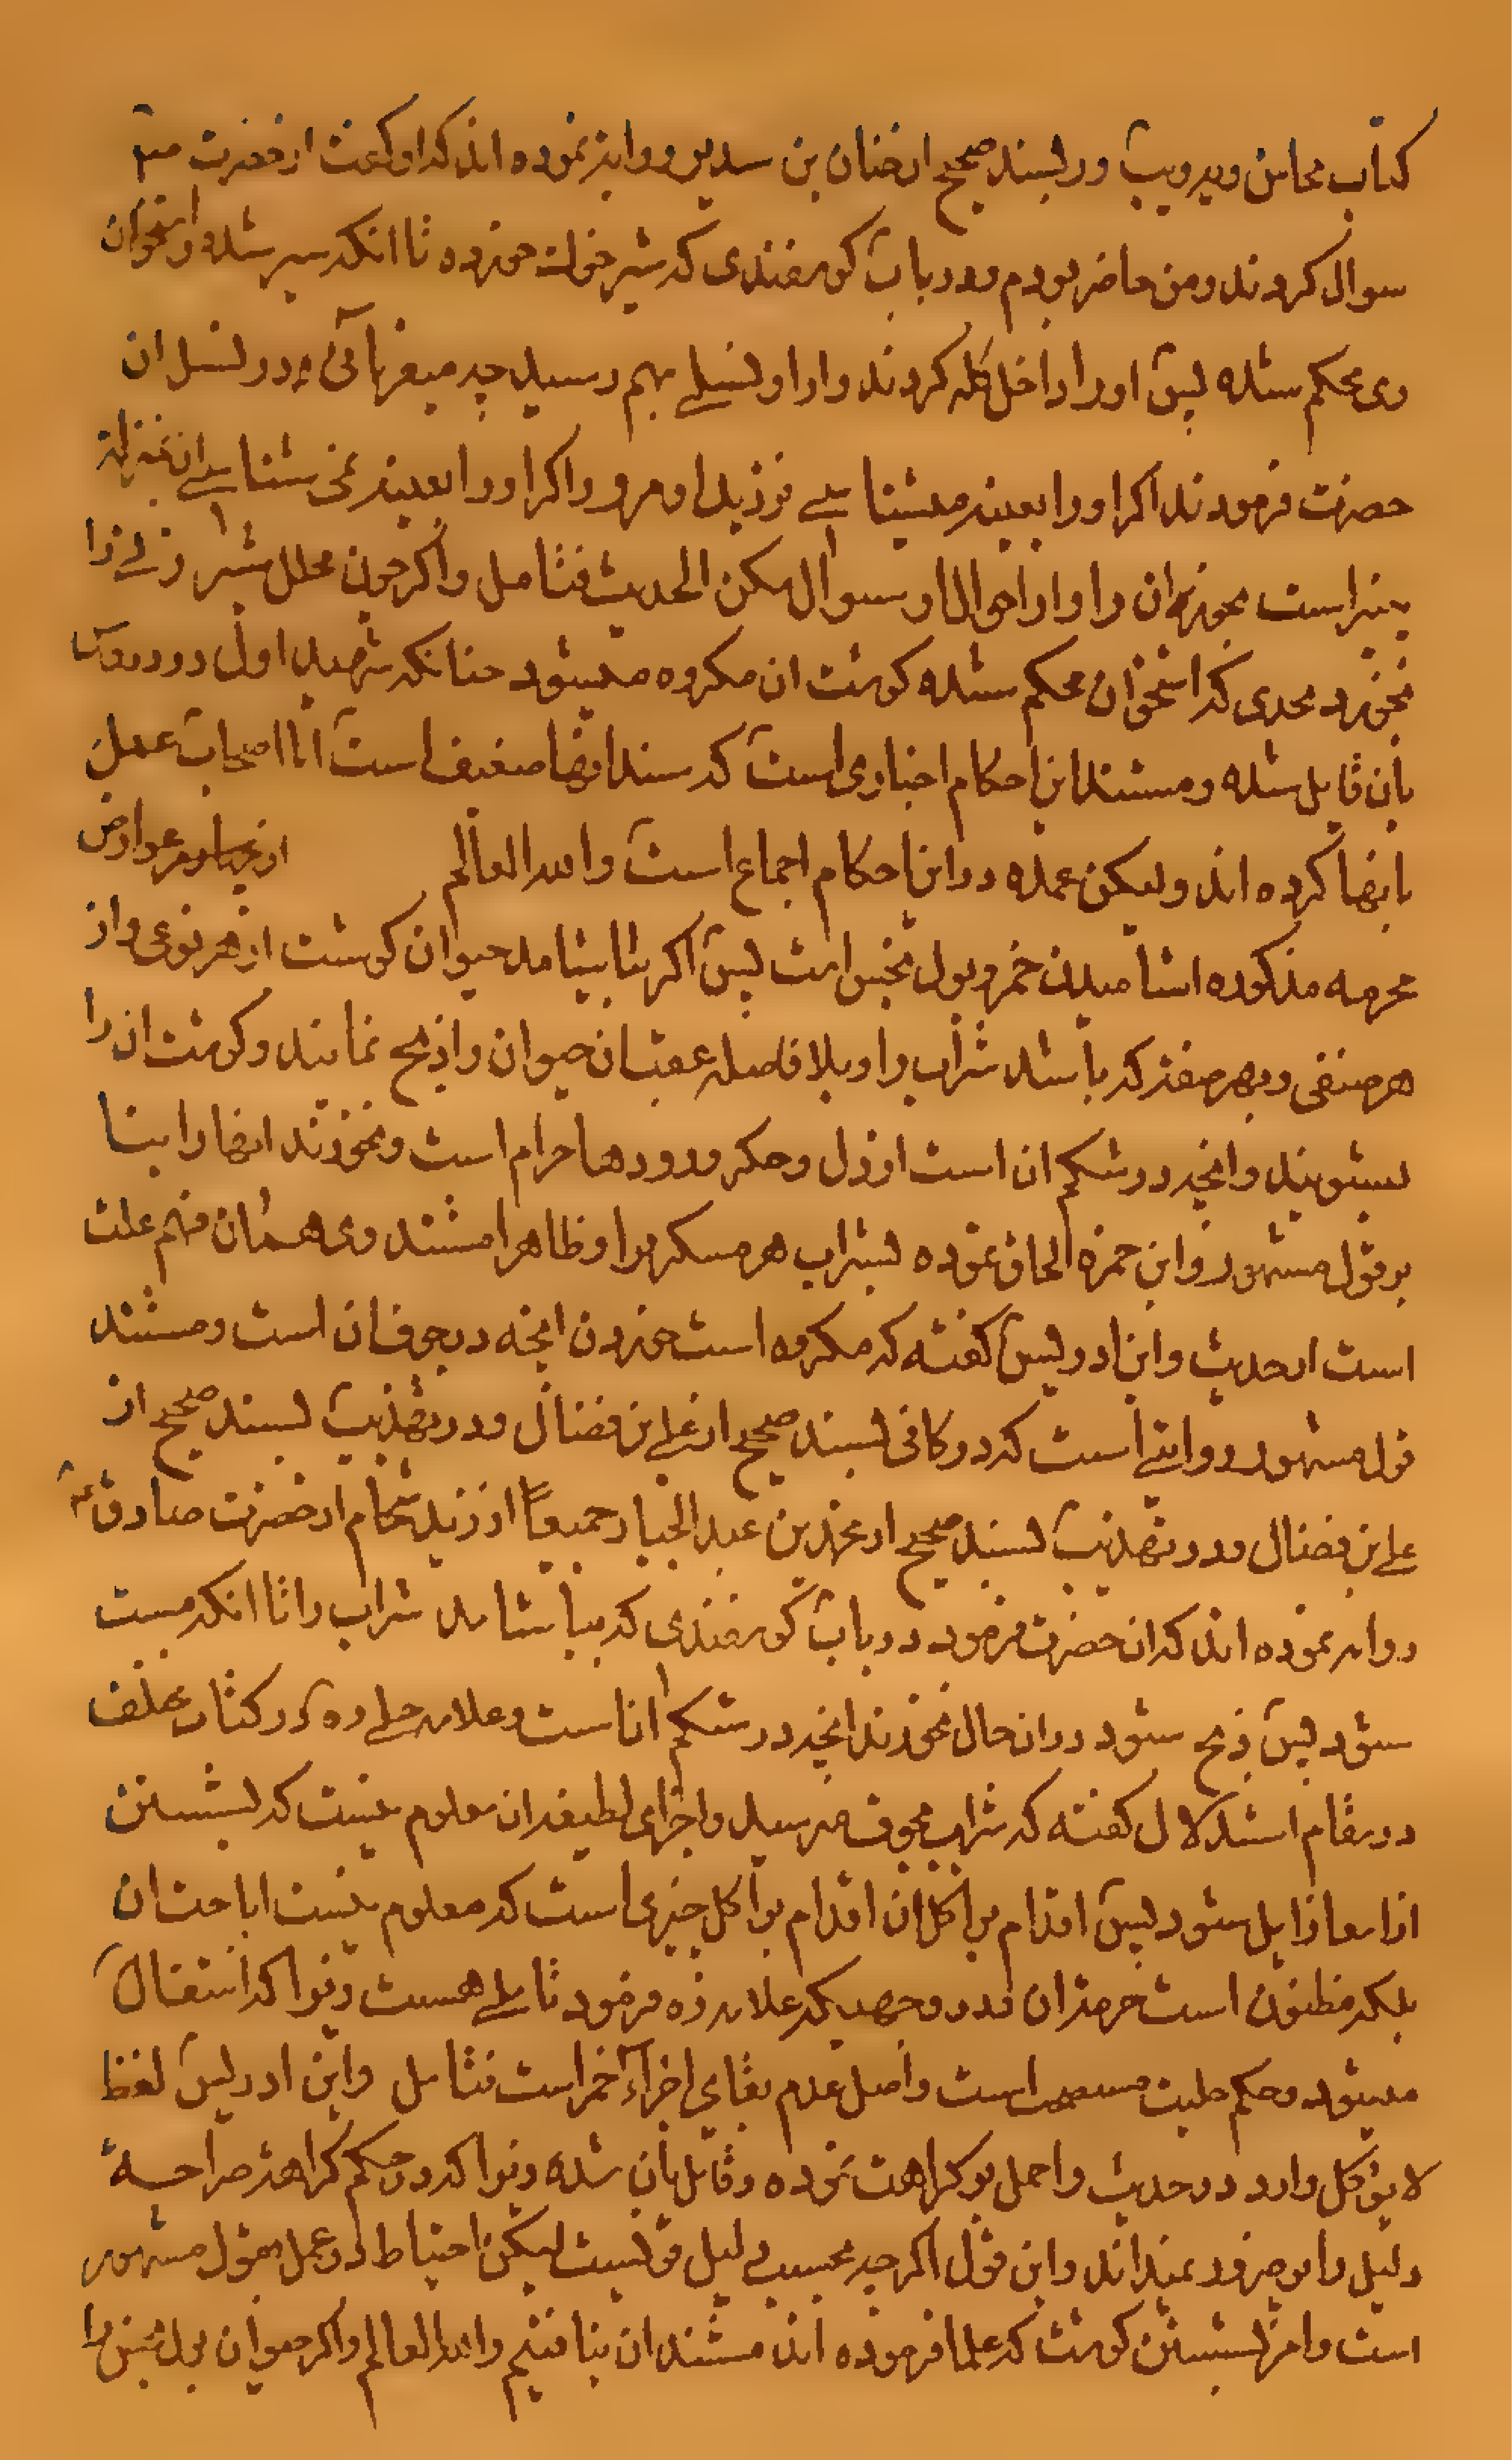 کتاب محاسن ویرویت ور بسند صحیح از حنان بن سدیر روایه نموده اند که او کفت از حضرت
سوال کردند و من حاضر بودم در باب کوسفندی که شیر خوک خورده تا انکه سیر شده و استخوان
وی محکم شده پس او را داخل کله کردند و از او نسلی بهم رسید چه میفرمائی در نسل ان
حضرت فرمودند اکر او را بعینه میشناسی نزدیک او مرو و اکر او را بعینه نمی شناسی ان بمنزله
پنیر است بخور ان را و از احوال او سوال مکن الحدیث فتامل و اکر چون محلل شیر زنی را
بخورد بحدی که استخوان محکم شده کوشت ان مکروه میشود چنانکه شهید اول در دروس
بان قایل شده و مستند این احکام اخباری است که سند انها ضعیف است اما اصحاب عمل
بانها کرده اند و لیکن عمده در این احکام اجماع است والله العالم از چهارم عوارض
محرمه مذکوره اشامیدن خمر و بول نجس است پس اکر بیاشامد حیوان کوشت از هر نوعی و از
هر صنفی و بهر صفته که باشد شراب را و بلا فاصله عقب ان حیوان را ذبح نمایند و کوشت ان را
بشویند و انچه در شکم ان است از دل و جکر و رودها حرام است و نخورند انها را بنا
بر قول مشهور و ابن حمزه الحاق نموده بشراب هر مسکر را و ظاهرا مستند وی همان فهم علت
است از حدیث و ابن ادریس کفته که مکروه است خوردن انچه در جوف ان است و مستند
قول مشهور روایتی است که در کافی بسند صحیح از علی بن فضال و در تهذیب بسند صحیح از
علی بن فضال و در تهذیب بسند صحیح از محمد بن عبد الجبار جمیعاً از زید شحام از حضرت صادق ع
روایه نموده اند که ان حضرت فرمود در باب کوسفندی که بیاشامد شراب را تا انکه مست
شود پس ذبح شود در ان حال نخورند انچه در شکم ان است و علامه حلی ره در کتاب مختلف
در مقام استدلال کفته که شراب بجوف میرسد و اجزای لطیفه ان معلوم نیست که بشستن
از امعا زایل شود پس اقدام بر اکل ان اقدام بر اکل چیزی است که معلوم نیست اباحت ان
بلکه مظنون است حرمت ان و در وجهیکه علامه ره فرمود تاملی هست زیرا که استحاله
میشود و حکم حلیت مستصحب است و اصل عدم بقای اجزاء خمر است فتامل و ابن ادریس لفظ
لا یؤکل وارد در حدیث را حمل بر کراهت نموده و قایل بان شده زیرا که در حکم کراهة صراحة
دلیل را ضرور نمیداند و این قول اکر چه بحسب دلیل قویست لیکن احتیاط در عمل بقول مشهور
است و امر بشستن کوشت که علما فرموده اند مستند ان نیافتیم والله العالم و اکر حیوان بول نجس را